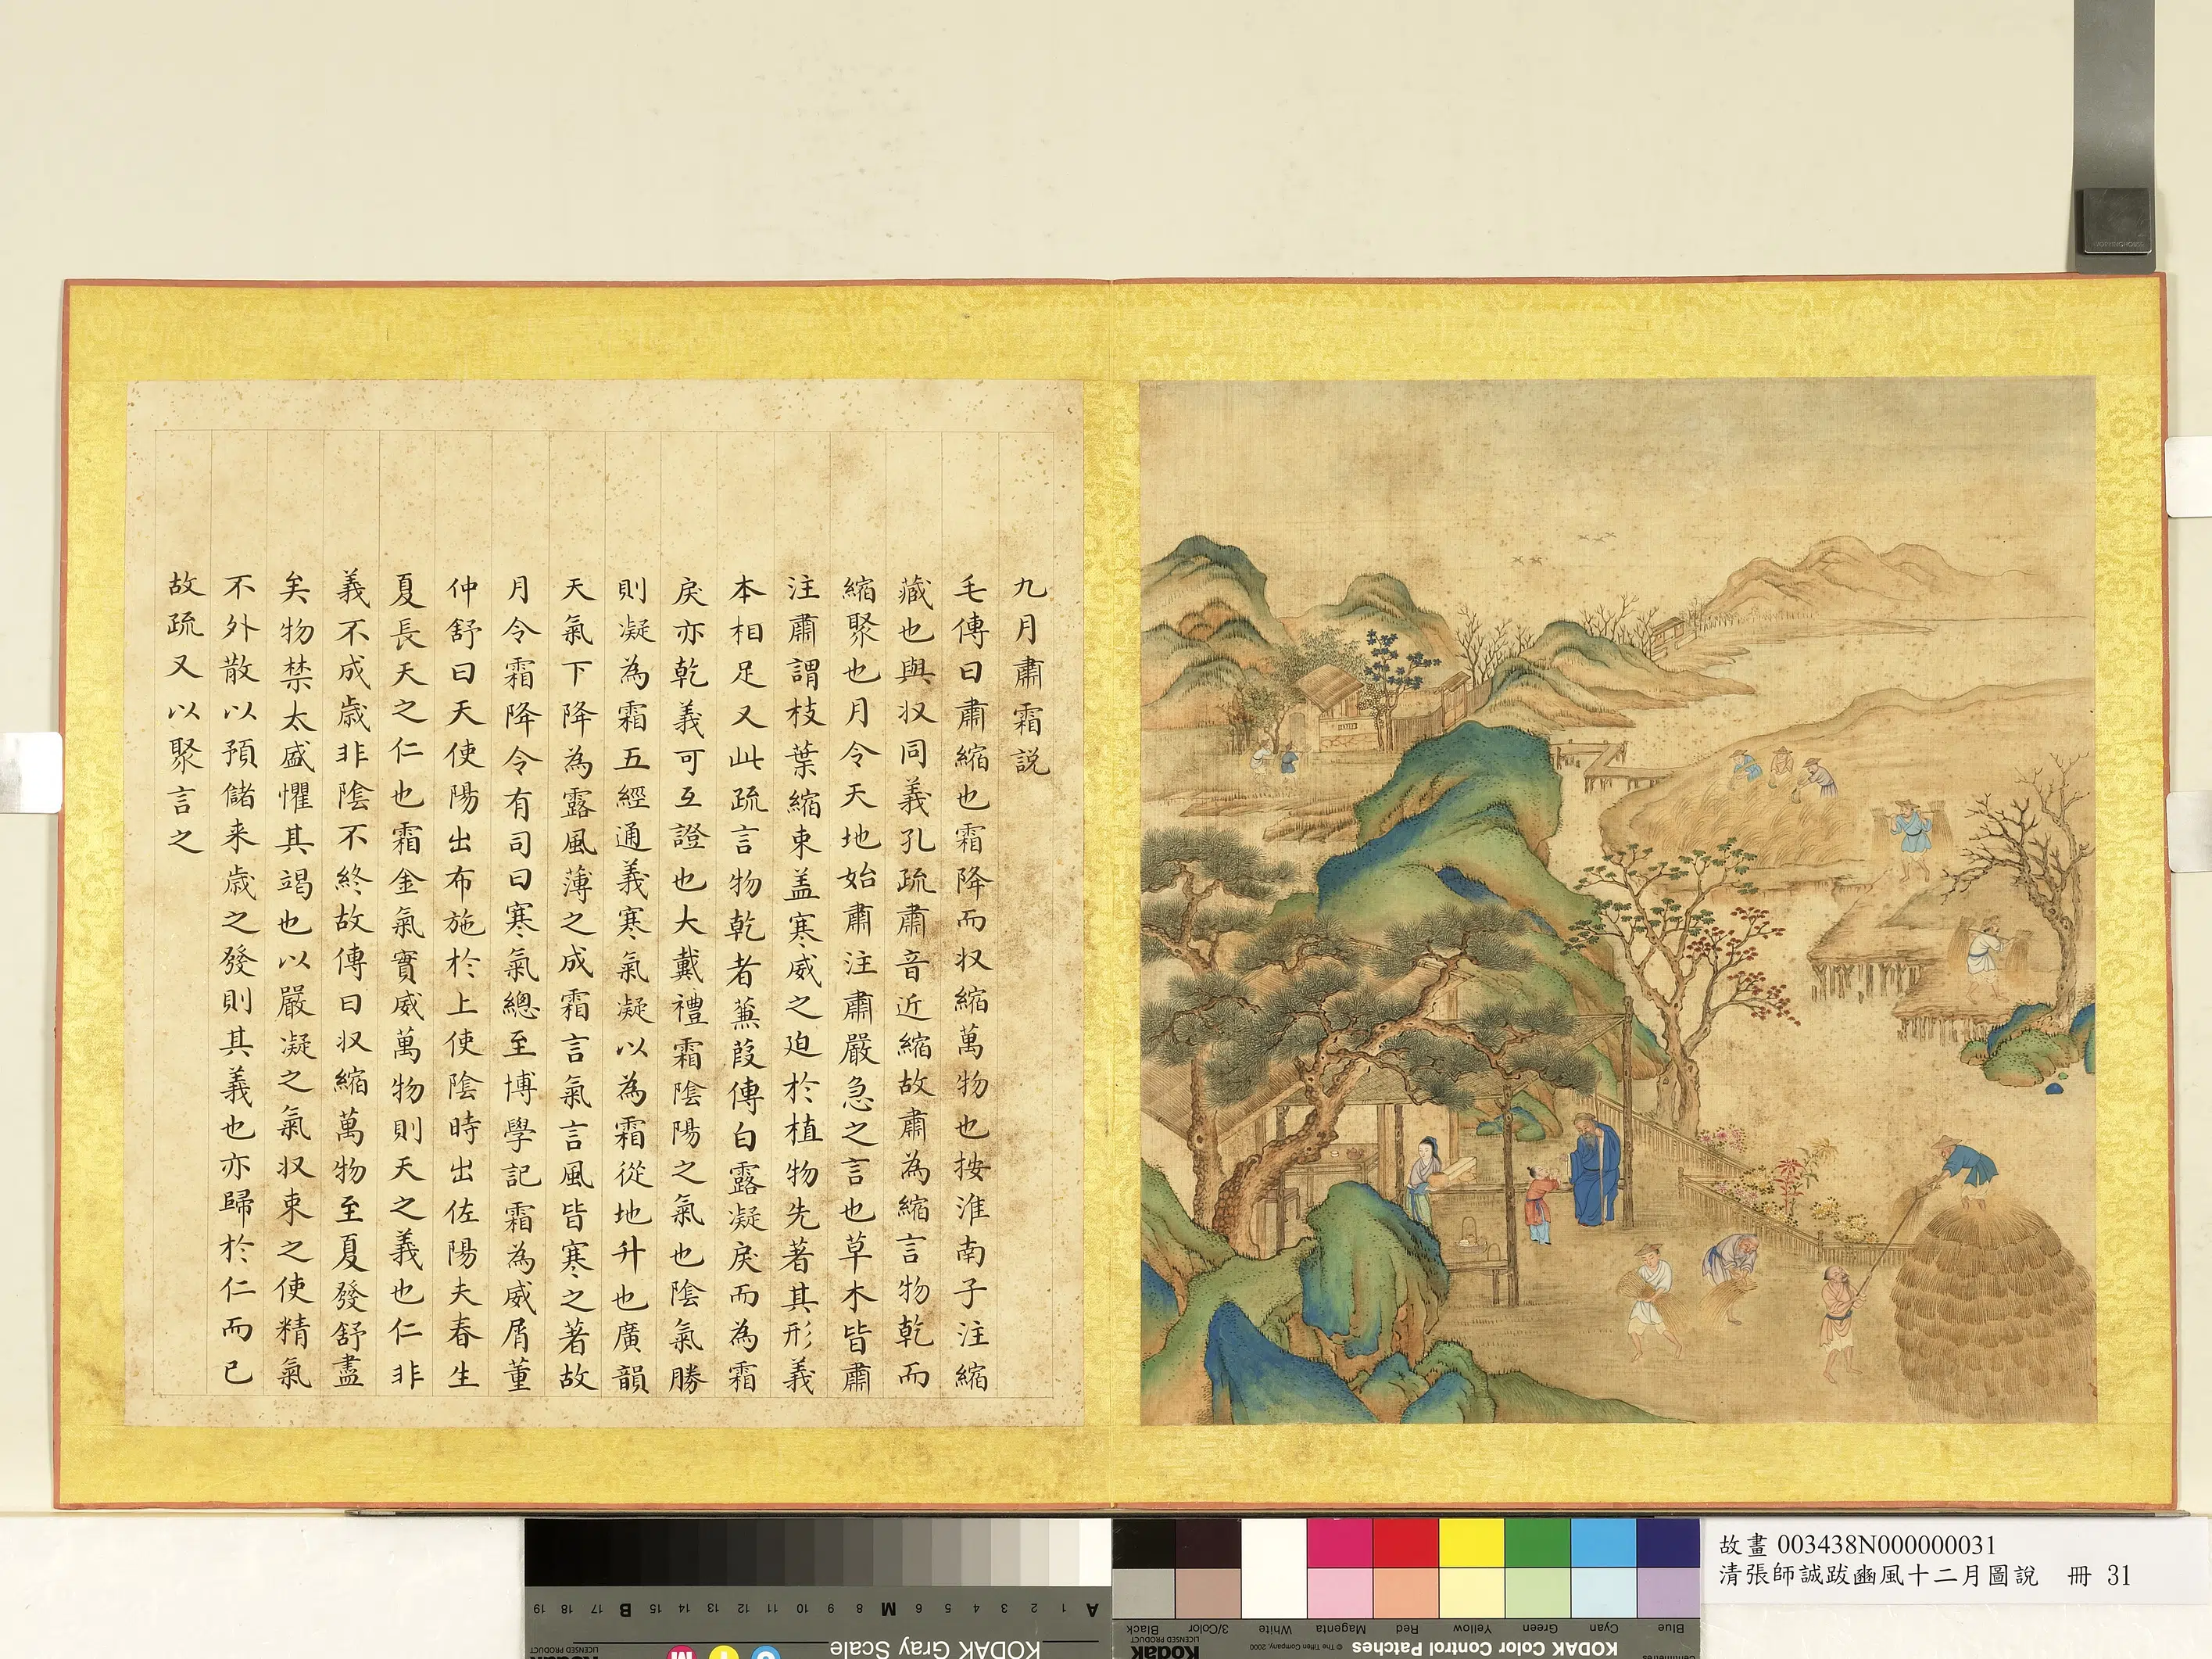 九月肅霜説
毛傳曰肅縮也霜降而収縮萬物也按淮南子注縮
藏也與収同義孔疏肅音近縮故肅為縮言物乾而
縮聚也月令天地始肅注肅嚴急之言也草木皆肅
注肅謂枝葉縮束盖寒威之迫於植物先著其形義
本相足又此疏言物乾者蒹葭傳白露凝戾而為霜
戾亦乾義可互證也大戴禮霜陰陽之氣也陰氣勝
則凝為霜五經通義寒氣凝以為霜從地升也廣韻
天氣下降為露風薄之成霜言氣言風皆寒之著故
月令霜降令有司曰寒氣總至博學記霜為威屑董
仲舒曰天使陽出布施於上使陰時出佐陽夫春生
夏長天之仁也霜金氣實威萬物則天之義也仁非
義不成歲非陰不終故傳曰収縮萬物至夏發舒盡
矣物禁太盛懼其竭也以嚴凝之氣収束之使精氣
不外散以預儲来歲之發則其義也亦歸於仁而已
故疏又以聚言之
故畫 003438N000000031
清張師誠跋豳風十二月圖說 冊 31
A 1 2 3 4 5 6 M 8 9 10 11 12 13 14 15 B 17 18 19
KODAK Gray Scale
LICENSED PRODUCT
Kodak
C Y M
Blue Cyan Green Yellow Red Magenta White 3/Color Black
KODAK Color Control Patches
© The Tiffen Company, 2000
Kodak
LICENSED PRODUCT
Centimetres